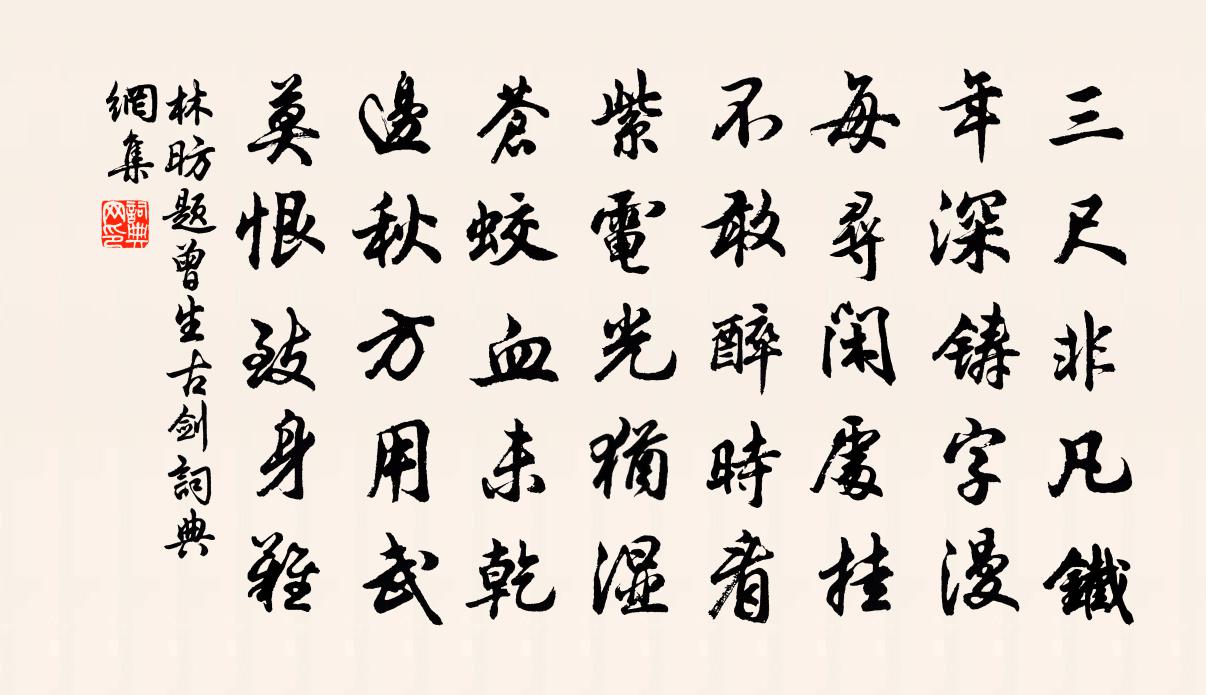 三尺非凡鐵
年深鑄字漫
每尋閑處挂
不敢醉時看
紫電光猶濕
蒼蛟血未乾
邊秋方用武
莫恨致身難
林昉題曾生古劍詞典
網集
詞典網印